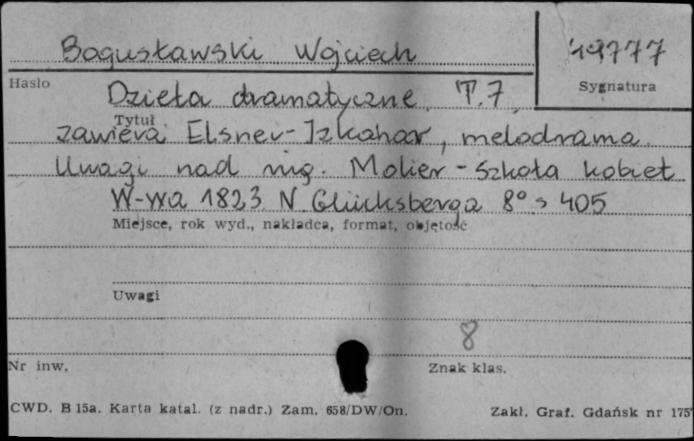 Bogusławski Wojciech
49777
Hasło
Sygnatura
Dzieła dramatyczne, T. 7,
Tytuł
zawiera Elsner - Izkahar, melodrama.
Uwagi nad nią. Molier - Szkoła kobiet
W-wa 1823 N. Glücksberga 8° s 405
Miejsce, rok wyd., nakładca, format, objętość
Uwagi
8
Nr inw.
Znak klas.
CWD. B 15a. Karta katal. (z nadr.) Zam. 658/DW/On.
Zakł. Graf. Gdańsk nr 175